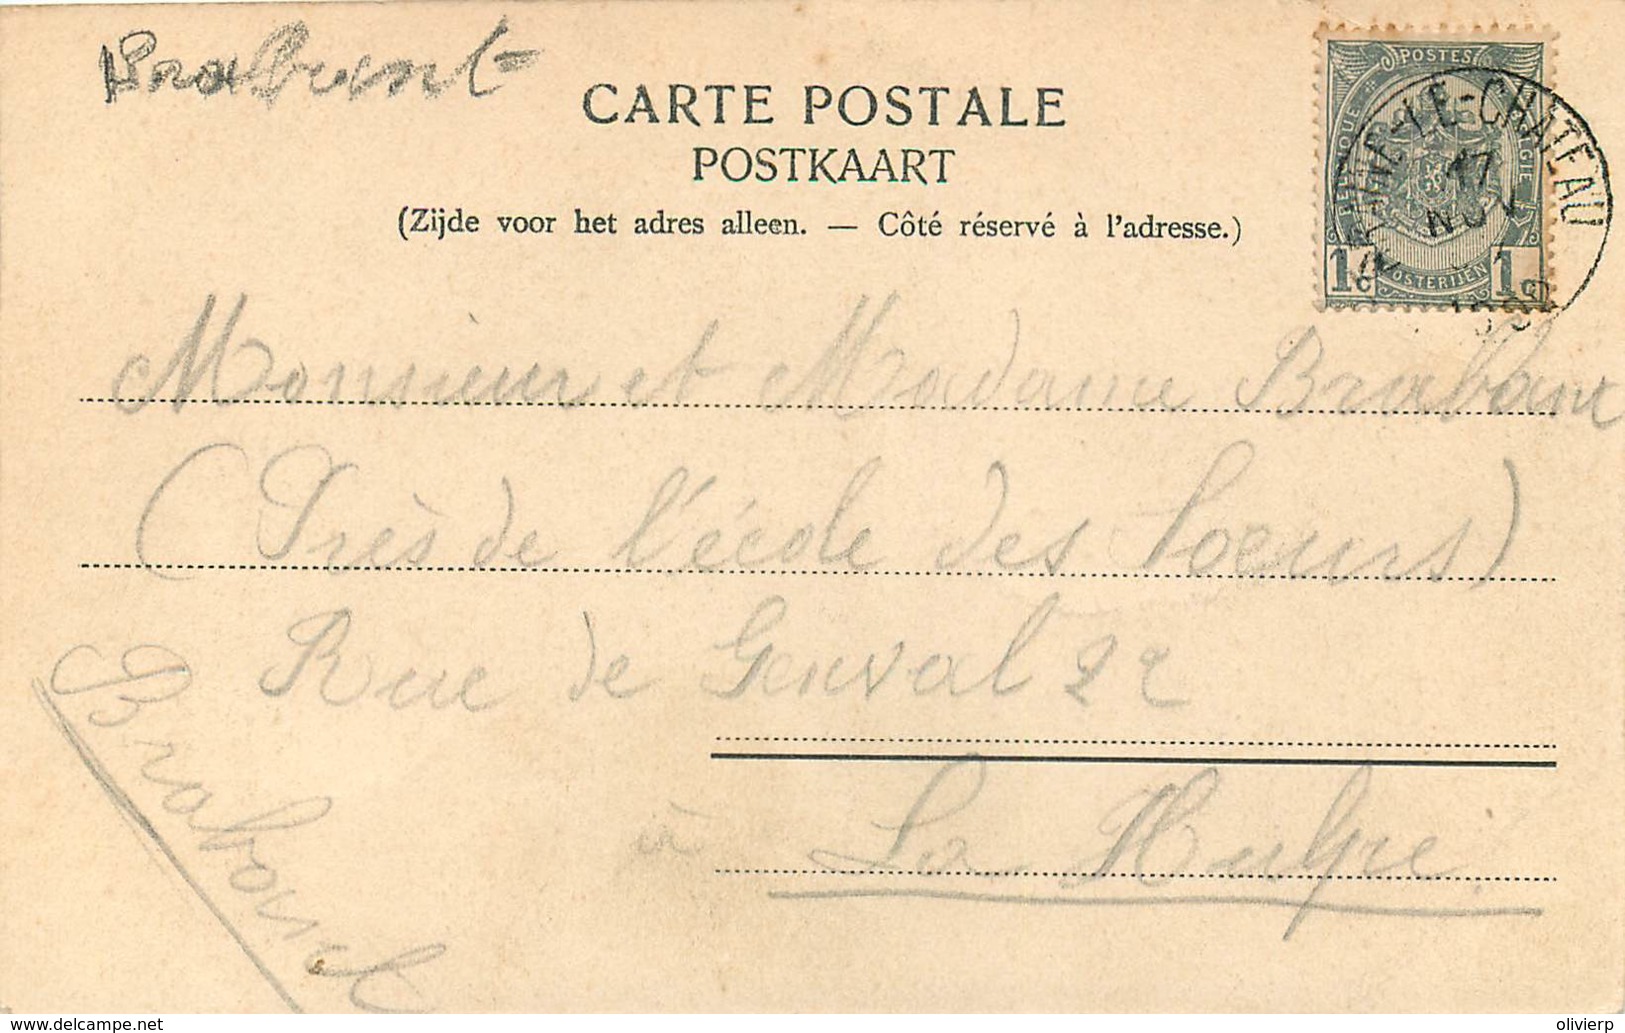 Brabant
CARTE POSTALE
POSTKAART
(Zijde voor het adres alleen. — Côté réservé à l'adresse.)
POSTES
BELGIQUE BELGIË
POSTERIJEN
1c 1c
BRAINE-LE-CHATEAU
17
NOV
Monsieur et Madame Brabant
(Près de l'école des Soeurs)
Rue de Genval 22
à La Hulpe
Brabant
www.delcampe.net
olivierp